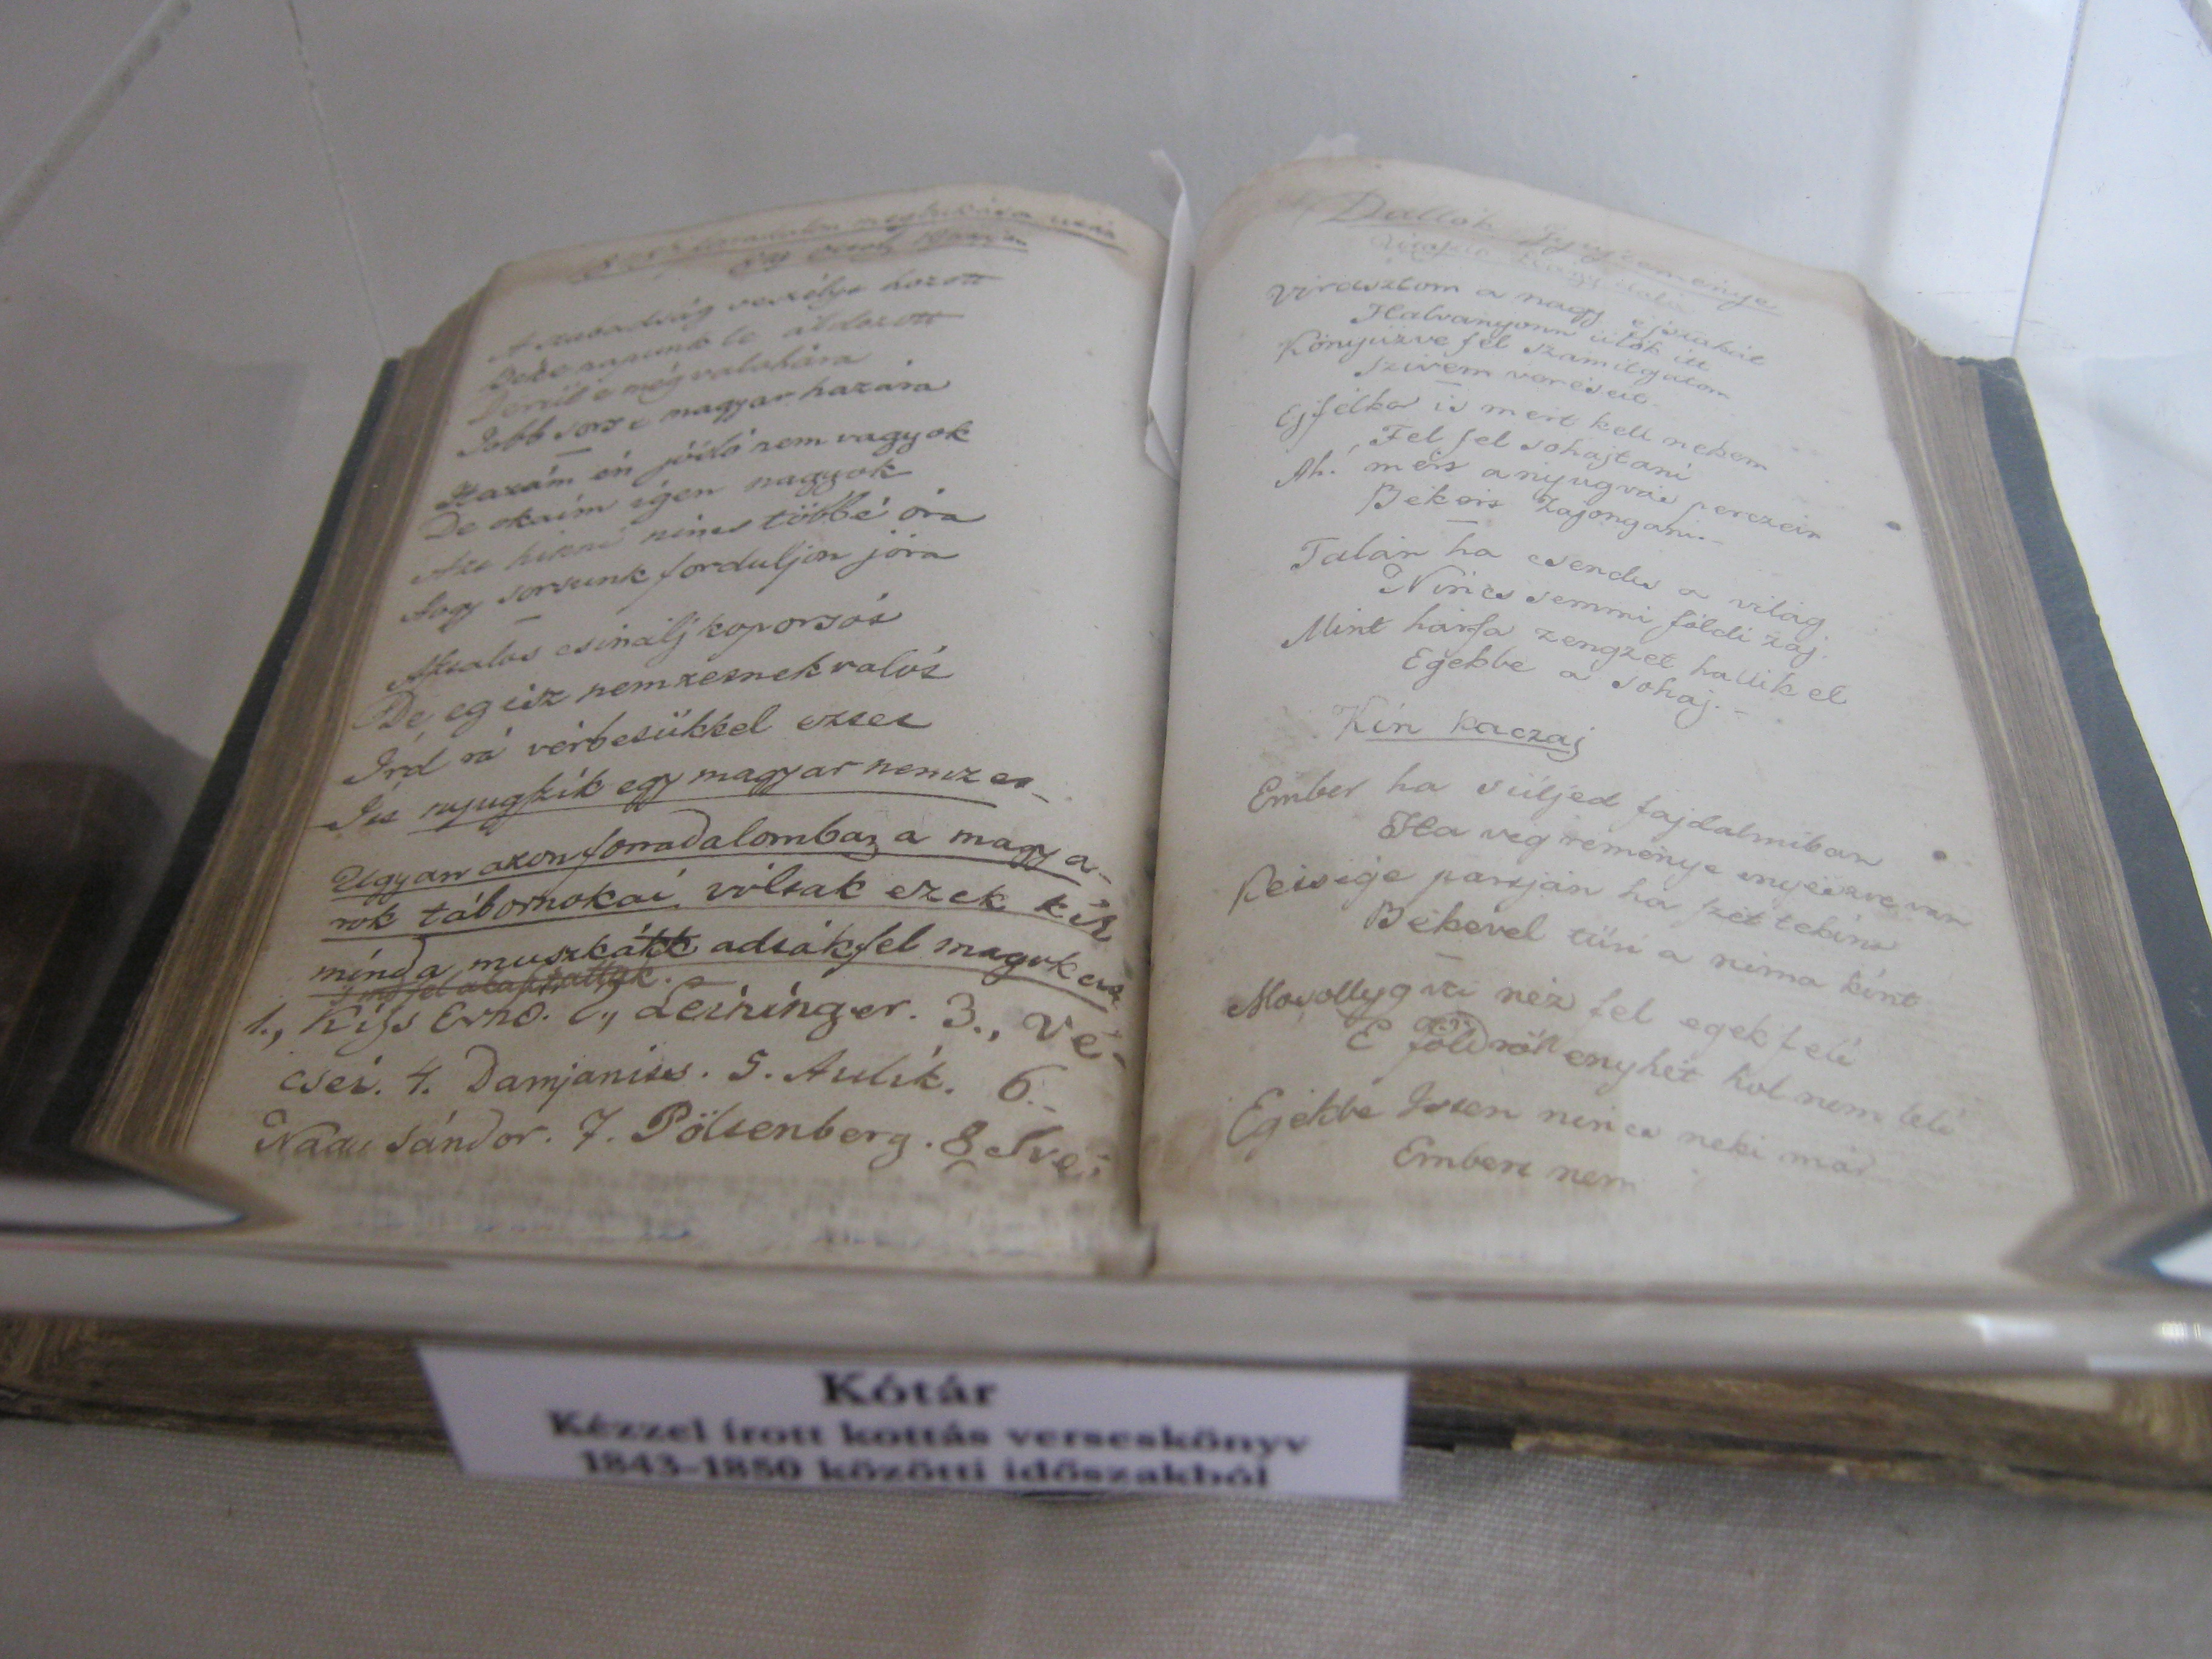 A szabadság veszélye hozott
még valahára
Jobb sors e magyar hazára
Hazám én jósló nem vagyok
De okaim igen nagyok
hinni nincs többé óra
Hogy sorsunk forduljon jóra
Asztalos csinálj koporsót
De, egész nemzetnek valót
Írd rá vérbetükkel eztet
Itt nyugszik egy magyar nemzet
Ugyan azon forradalomban a magya-
rok tábornokai vóltak ezek kik
mind a muszkátt adták fel magokat
1., Kiss Ernő. 2., Leininger. 3., Vé-
csei. 4. Damjanits. 5. Aulik. 6.
Nagy Sándor. 7. Pöltenberg. 8
Dallok Gyujteménye
Virasztom a nagy éjszakát
Halványonn ülök itt
Könyüzve fel számitgatom
Szivem veréseit.
Éjfélkor is mért kell nekem
Fel fel sohajtani
Ah! mért a nyugvás perczein
Békét Zajongani.
Talán ha csendes a világ
Nincs semmi földi zaj.
Mint hárfa zengzet hallik el
Egekbe a sohaj.
Kín kaczaj
Ember ha sűljed fajdalmiban
Ha vég reménye enyészve van
Kétsége partján ha szét tekint
Békével tűri a néma kínt
Mosollygva néz fel egek felé
E földröl enyhét hol nem lelé
Egekbe Isten nincs neki már
Embert nem
Kótár
Kézzel írott kottás verseskönyv
1843-1850 közötti időszakból